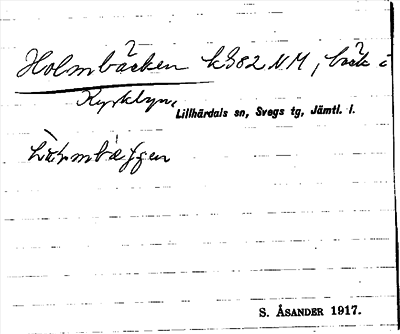 Holmbäcken k382 NM, bäck i
Kyrkbyn,
Lillhärdals sn, Svegs tg, Jämtl. l.
S. ÅSANDER 1917.